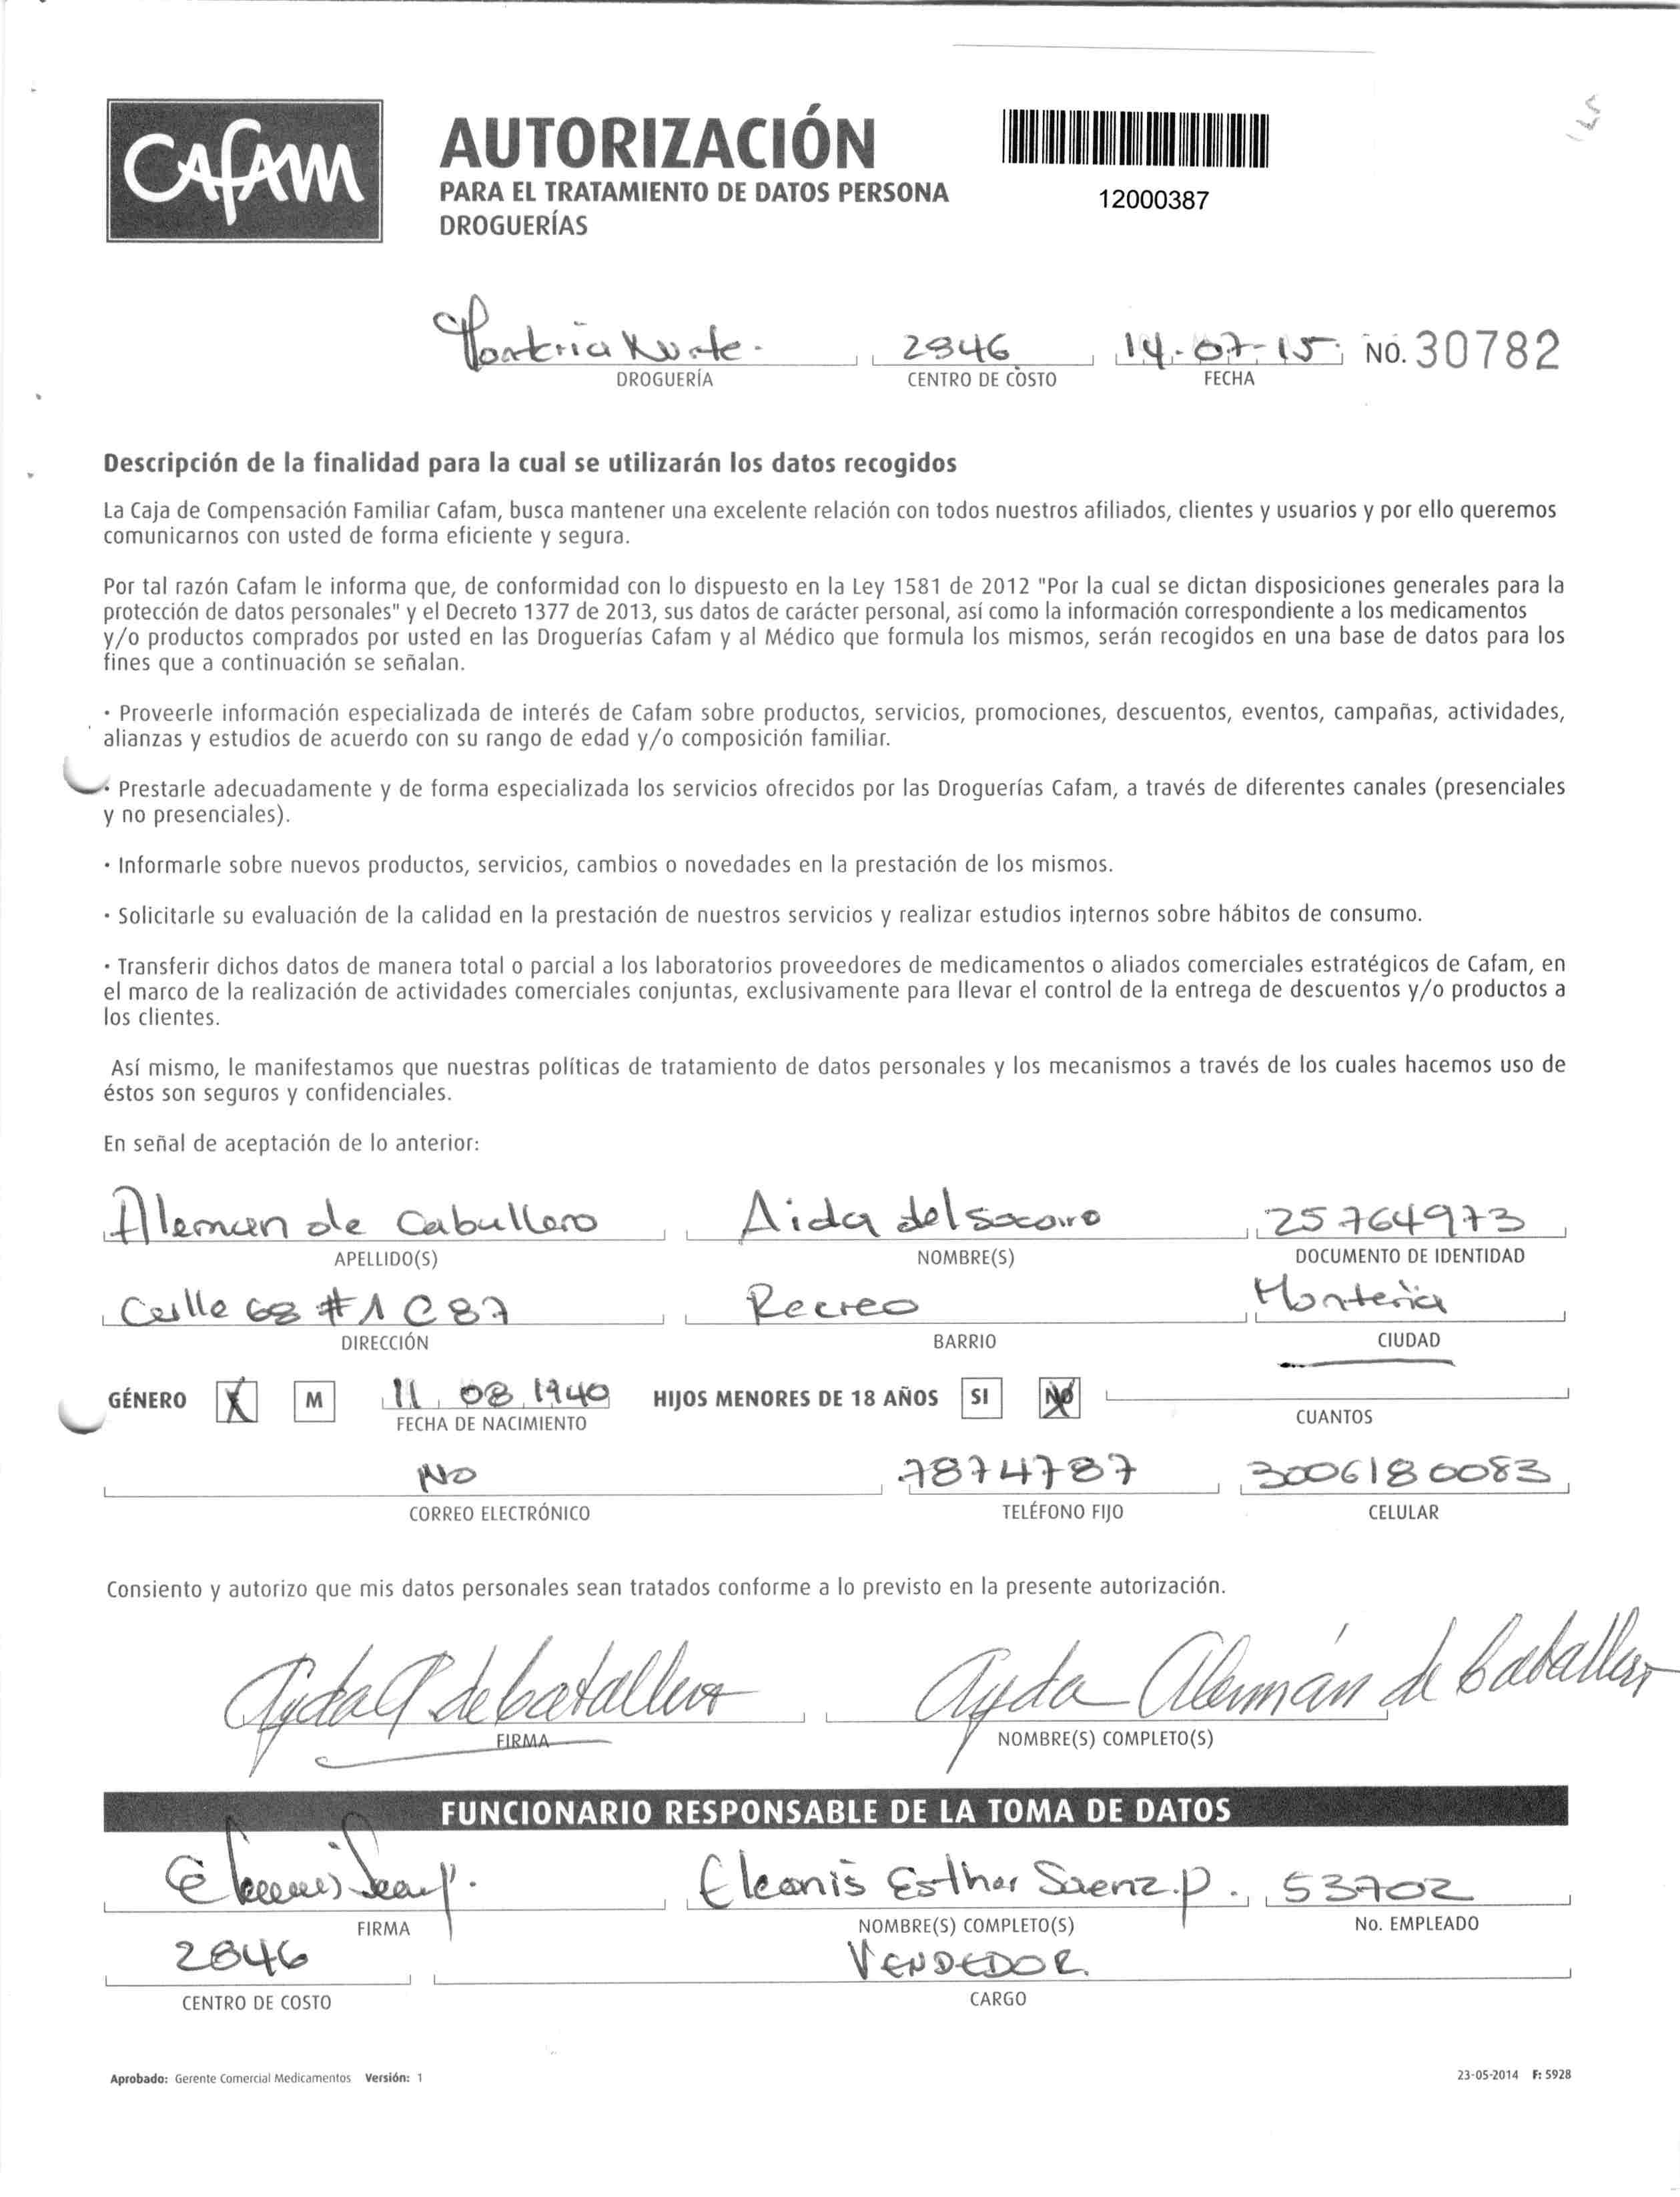 Cafam
AUTORIZACIÓN
PARA EL TRATAMIENTO DE DATOS PERSONA
DROGUERÍAS
12000387
Montería Norte. 2846 14-07-15 NO. 30782
DROGUERÍA CENTRO DE COSTO FECHA
Descripción de la finalidad para la cual se utilizarán los datos recogidos
La Caja de Compensación Familiar Cafam, busca mantener una excelente relación con todos nuestros afiliados, clientes y usuarios y por ello queremos
comunicarnos con usted de forma eficiente y segura.
Por tal razón Cafam le informa que, de conformidad con lo dispuesto en la Ley 1581 de 2012 "Por la cual se dictan disposiciones generales para la
protección de datos personales" y el Decreto 1377 de 2013, sus datos de carácter personal, así como la información correspondiente a los medicamentos
y/o productos comprados por usted en las Droguerías Cafam y al Médico que formula los mismos, serán recogidos en una base de datos para los
fines que a continuación se señalan.
· Proveerle información especializada de interés de Cafam sobre productos, servicios, promociones, descuentos, eventos, campañas, actividades,
alianzas y estudios de acuerdo con su rango de edad y/o composición familiar.
· Prestarle adecuadamente y de forma especializada los servicios ofrecidos por las Droguerías Cafam, a través de diferentes canales (presenciales
y no presenciales).
· Informarle sobre nuevos productos, servicios, cambios o novedades en la prestación de los mismos.
· Solicitarle su evaluación de la calidad en la prestación de nuestros servicios y realizar estudios internos sobre hábitos de consumo.
· Transferir dichos datos de manera total o parcial a los laboratorios proveedores de medicamentos o aliados comerciales estratégicos de Cafam, en
el marco de la realización de actividades comerciales conjuntas, exclusivamente para llevar el control de la entrega de descuentos y/o productos a
los clientes.
Así mismo, le manifestamos que nuestras políticas de tratamiento de datos personales y los mecanismos a través de los cuales hacemos uso de
éstos son seguros y confidenciales.
En señal de aceptación de lo anterior:
Aleman de Caballero Aida del socorro 25764973
APELLIDO(S) NOMBRE(S) DOCUMENTO DE IDENTIDAD
Calle 68 #1 C 87 Recreo Montería
DIRECCIÓN BARRIO CIUDAD
GÉNERO X M 11 08 1940 HIJOS MENORES DE 18 AÑOS SI NO
FECHA DE NACIMIENTO CUANTOS
NO 7874787 3006180083
CORREO ELECTRÓNICO TELÉFONO FIJO CELULAR
Consiento y autorizo que mis datos personales sean tratados conforme a lo previsto en la presente autorización.
Ayda A de Caballero Ayda Alemán de Caballero
FIRMA NOMBRE(S) COMPLETO(S)
FUNCIONARIO RESPONSABLE DE LA TOMA DE DATOS
Eleanis Saenz p. Eleanis Esther Saenz.p. 53702
FIRMA NOMBRE(S) COMPLETO(S) No. EMPLEADO
2846 VENDEDOR.
CENTRO DE COSTO CARGO
Aprobado: Gerente Comercial Medicamentos Versión: 1 23-05-2014 F: 5928